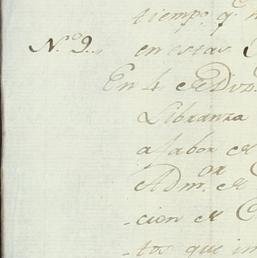 tiempo q.e
N.o 9. en estas
En 4 de
Libranza
a favor de
Adm.or de
cion de
tos que im